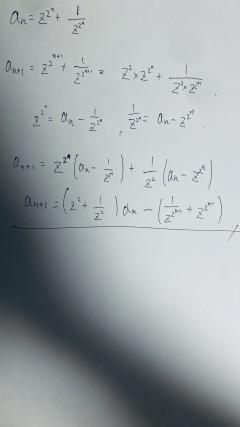 aₙ = z^{2^n} + 1/z^{2^n}
aₙ₊₁ = z^{2^{n+1}} + 1/z^{2^{n+1}} = z² × z^{2^n} + 1/(z² × z^{2^n})
z^{2^n} = aₙ - 1/z^{2^n} , 1/z^{2^n} = aₙ - z^{2^n}
aₙ₊₁ = z^{2^n}(aₙ - 1/z^{2^n}) + 1/z²(aₙ - z^{2^n})
aₙ₊₁ = (z² + 1/z²)aₙ - (1/z^{2^{n+1}} + z^{2^{n+1}})